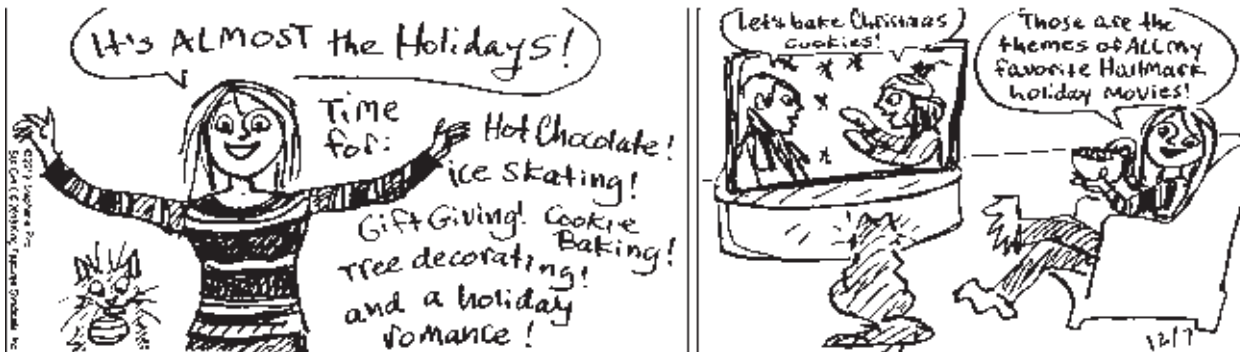 It's ALMOST the Holidays!
Time
for:
Hot Chocolate!
ice skating!
Gift Giving! Cookie
Baking!
Tree decorating!
and a holiday
romance!
Let's bake Christmas
cookies!
Those are the
themes of ALL my
favorite Hallmark
holiday movies!
12/7